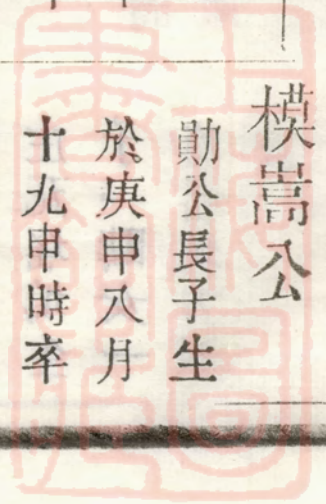 模嵩公
勛公長子生
於庚申八月
十九申時卒